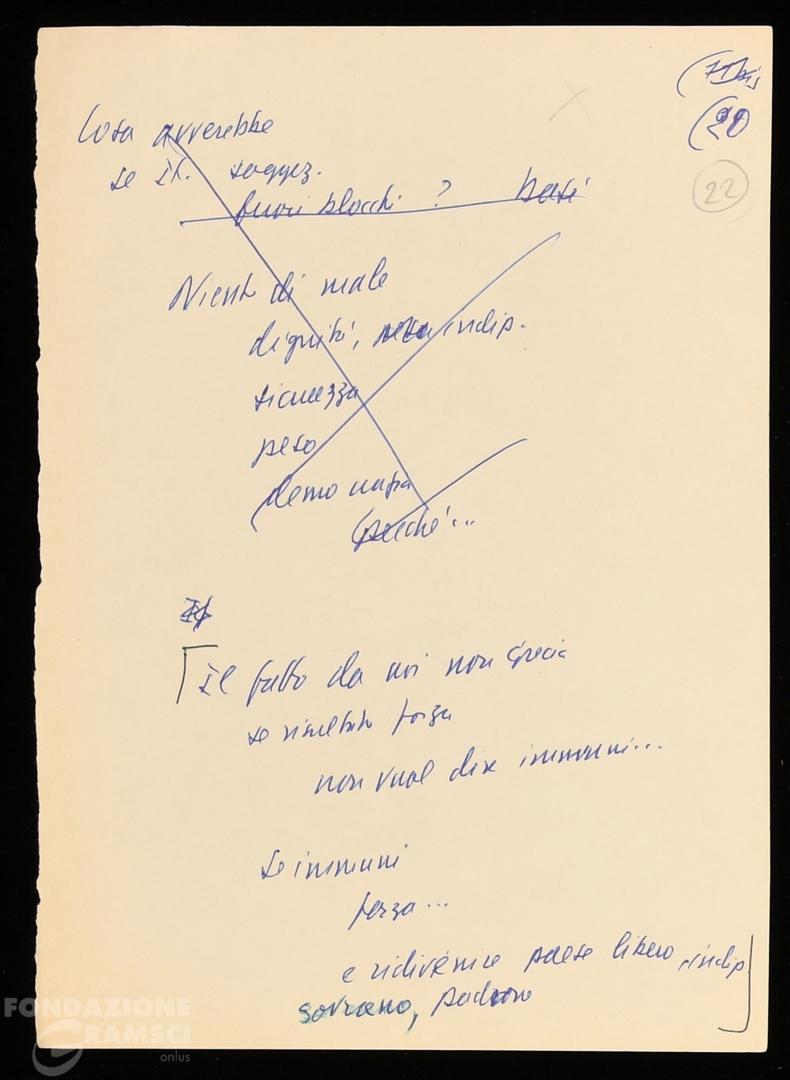 (71bis
(20
22
Cosa avverebbe
se It. soggez.
fuori blocchi ? basi
Nient di male
dignità, indip.
sicurezza
peso
(democrazia
(perché...
Il fatto da noi non Grecia
se risultato forza
non vuol dire immuni...
se immuni
forza...
e ridivenire paese libero, indip
sovrano, padrone
FONDAZIONE
GRAMSCI
onlus